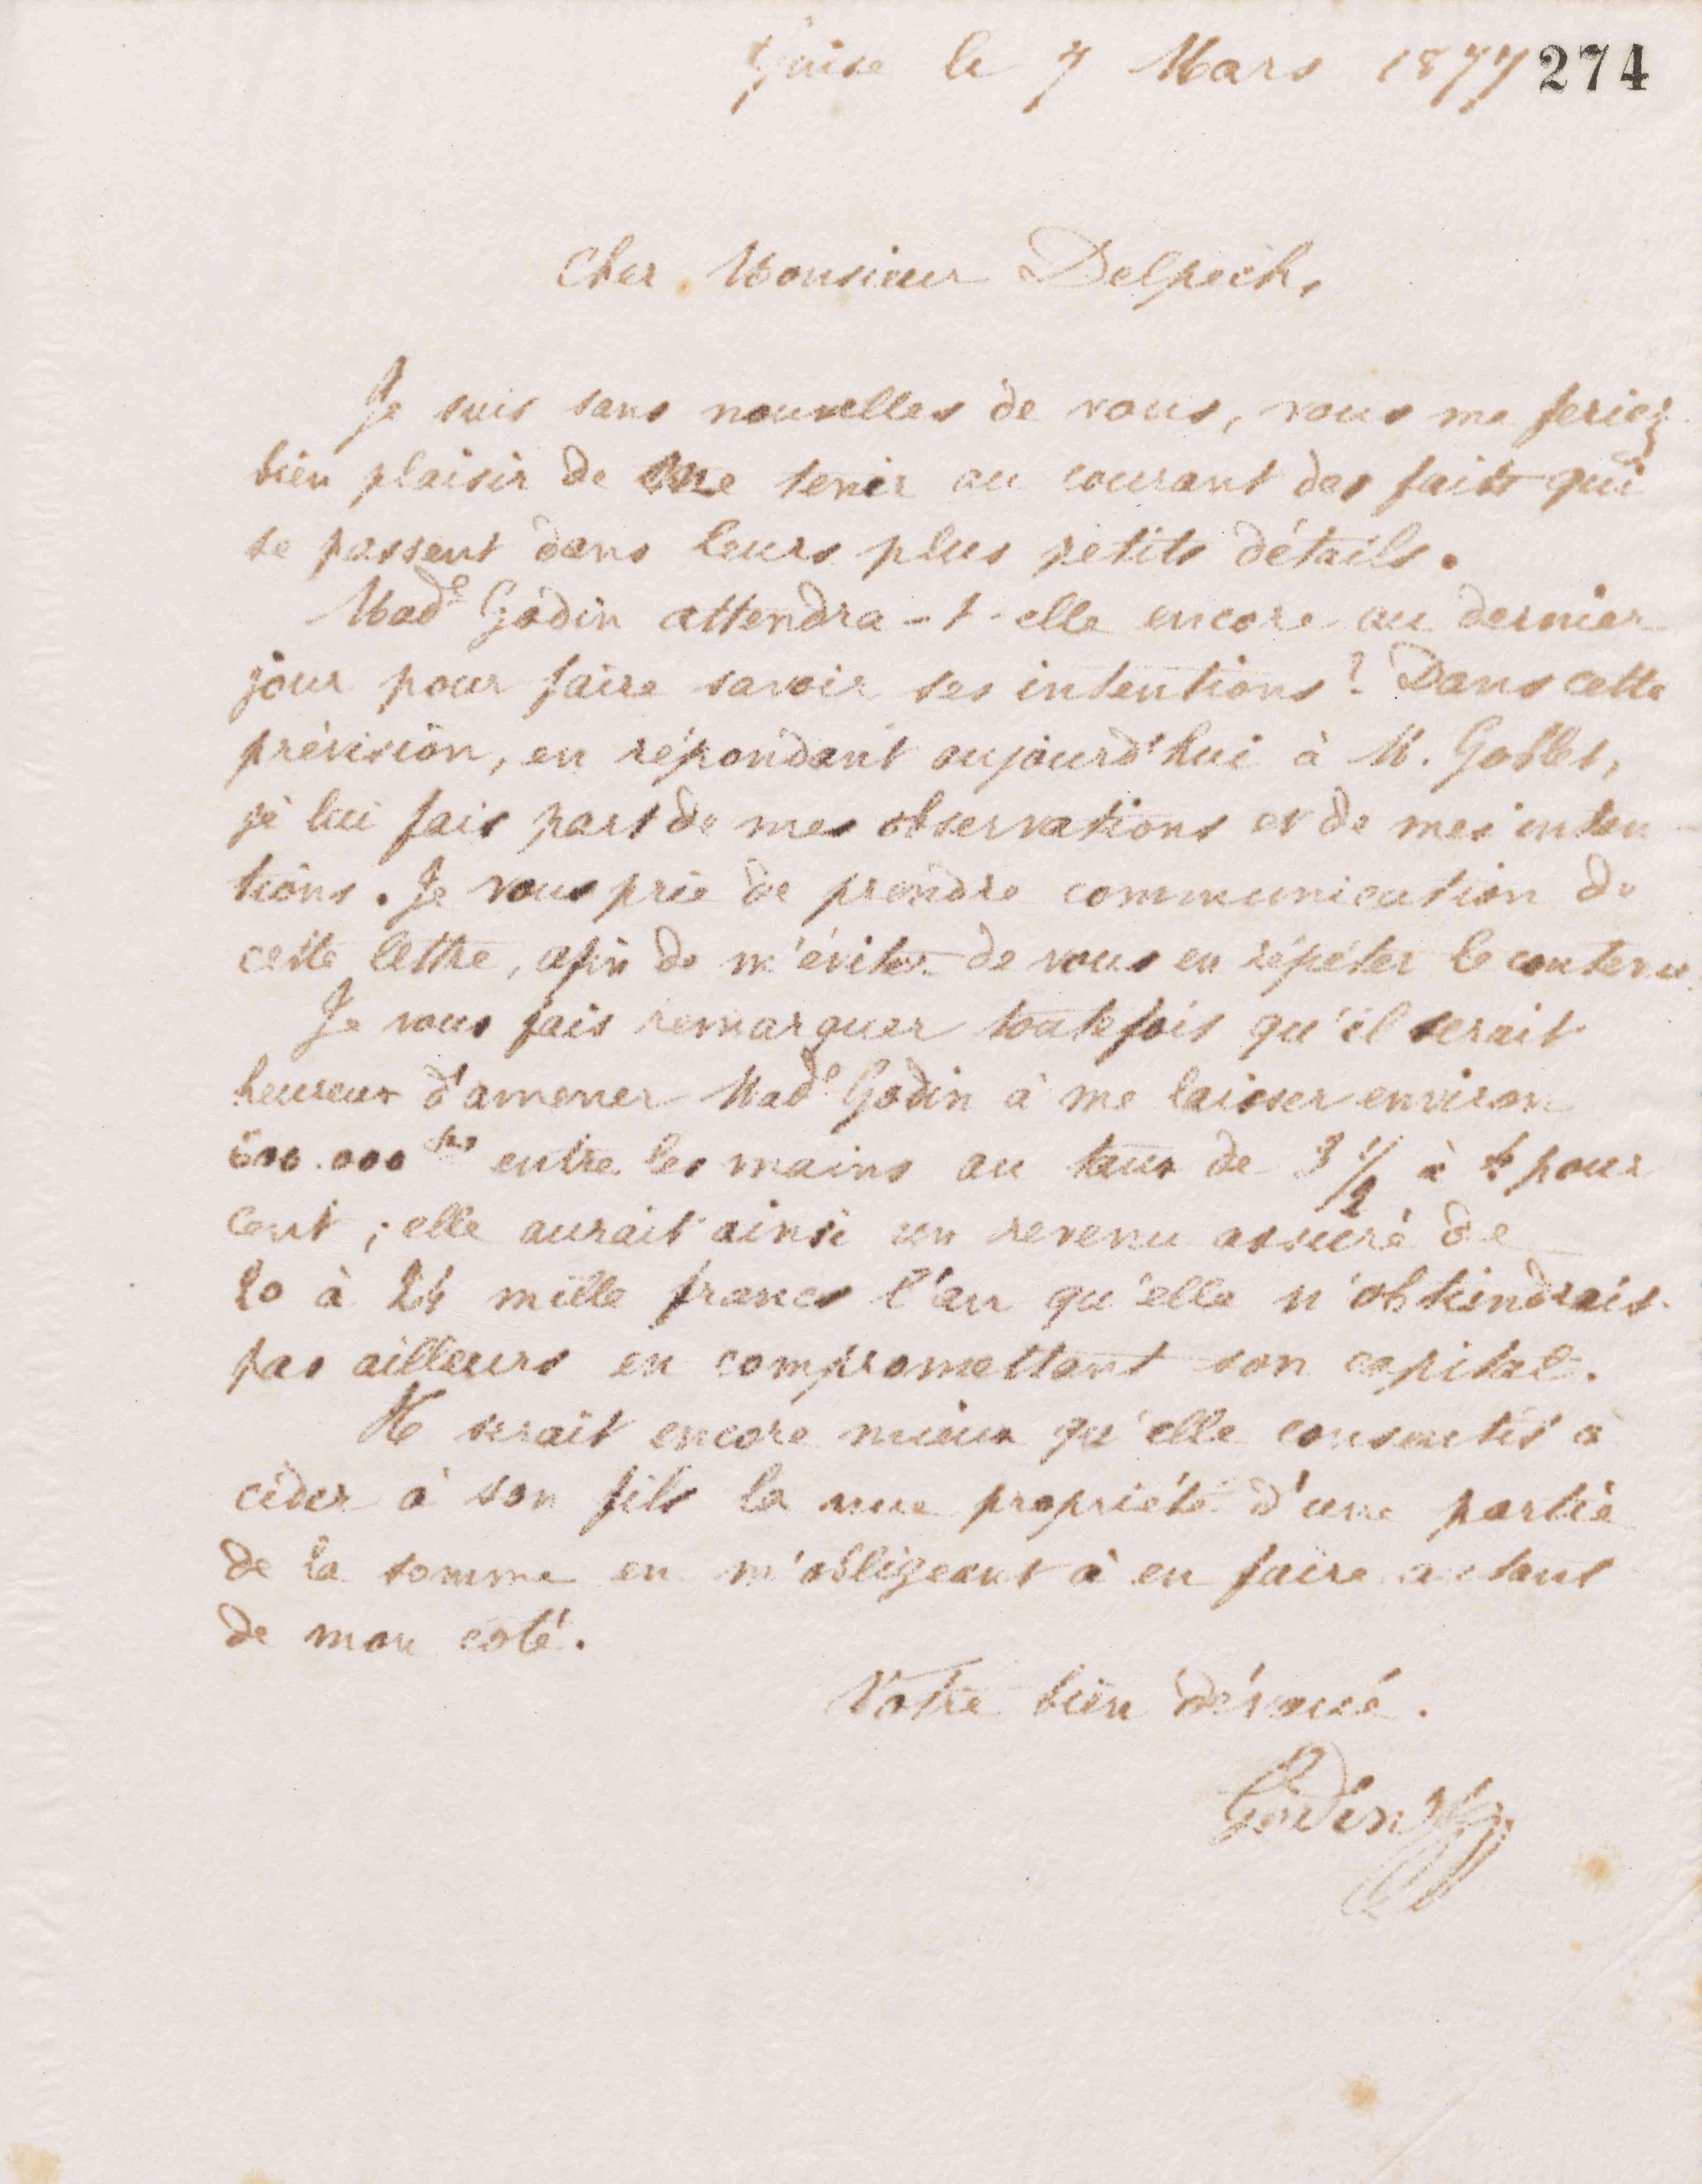 Guise le 7 Mars 1877 274
Cher Monsieur Delpech,
Je suis sans nouvelles de vous, vous me feriez
bien plaisir de me tenir au courant des faits qui
se passent dans leurs plus petits détails.
Made Godin attendra-t-elle encore au dernier
jour pour faire savoir ses intentions ? Dans cette
prévision, en répondant aujourd'hui à M. Goblet,
je lui fais part de mes observations et de mes inten
tions. Je vous prie de prendre communication de
cette lettre, afin de m'éviter de vous en répéter le contenu.
Je vous fais remarquer toutefois qu'il serait
heureux d'amener Made Godin à me laisser environ
600.000 frs entre les mains au taux de 3 1/2 à 4 pour
cent ; elle aurait ainsi un revenu assuré de
20 à 24 mille francs l'an qu'elle n'obtiendrait
pas ailleurs en compromettant son capital.
Il serait encore mieux qu'elle consentit à
céder à son fils la nue propriété d'une partie
de la somme en m'obligeant à en faire autant
de mon coté.
Votre bien dévoué.
Godin